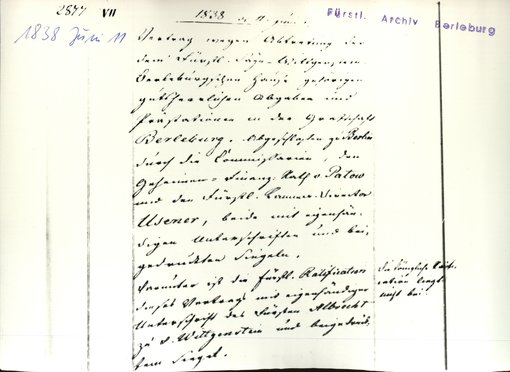 2877 VII
1838 d. 11 Juni
Fürstl. Archiv Berleburg
1838 Juni 11
Vertrag wegen Abtretung der
dem Fürstl. Sayn-Wittgenstein
Berleburgischen Hause gehörigen
gutsherrlichen Abgaben und
Prästationen in der Grafschaft
Berleburg. Abgeschlossen zu Berlin
durch die Commissarien, den
Geheimen-Finanz-Rath v Patow
und den Fürstl. Kammer-Director
Usener, beide mit eigenhän-
digen Unterschriften und bei-
gedruckten Siegeln.
Darunter ist die Fürstl. Ratification
dieses Vertrags mit eigenhändiger
Unterschrift des Fürsten Albrecht
zu S. Wittgenstein und beigedruck-
tem Siegel.
die königliche Rati-
cation liegt
nicht bei